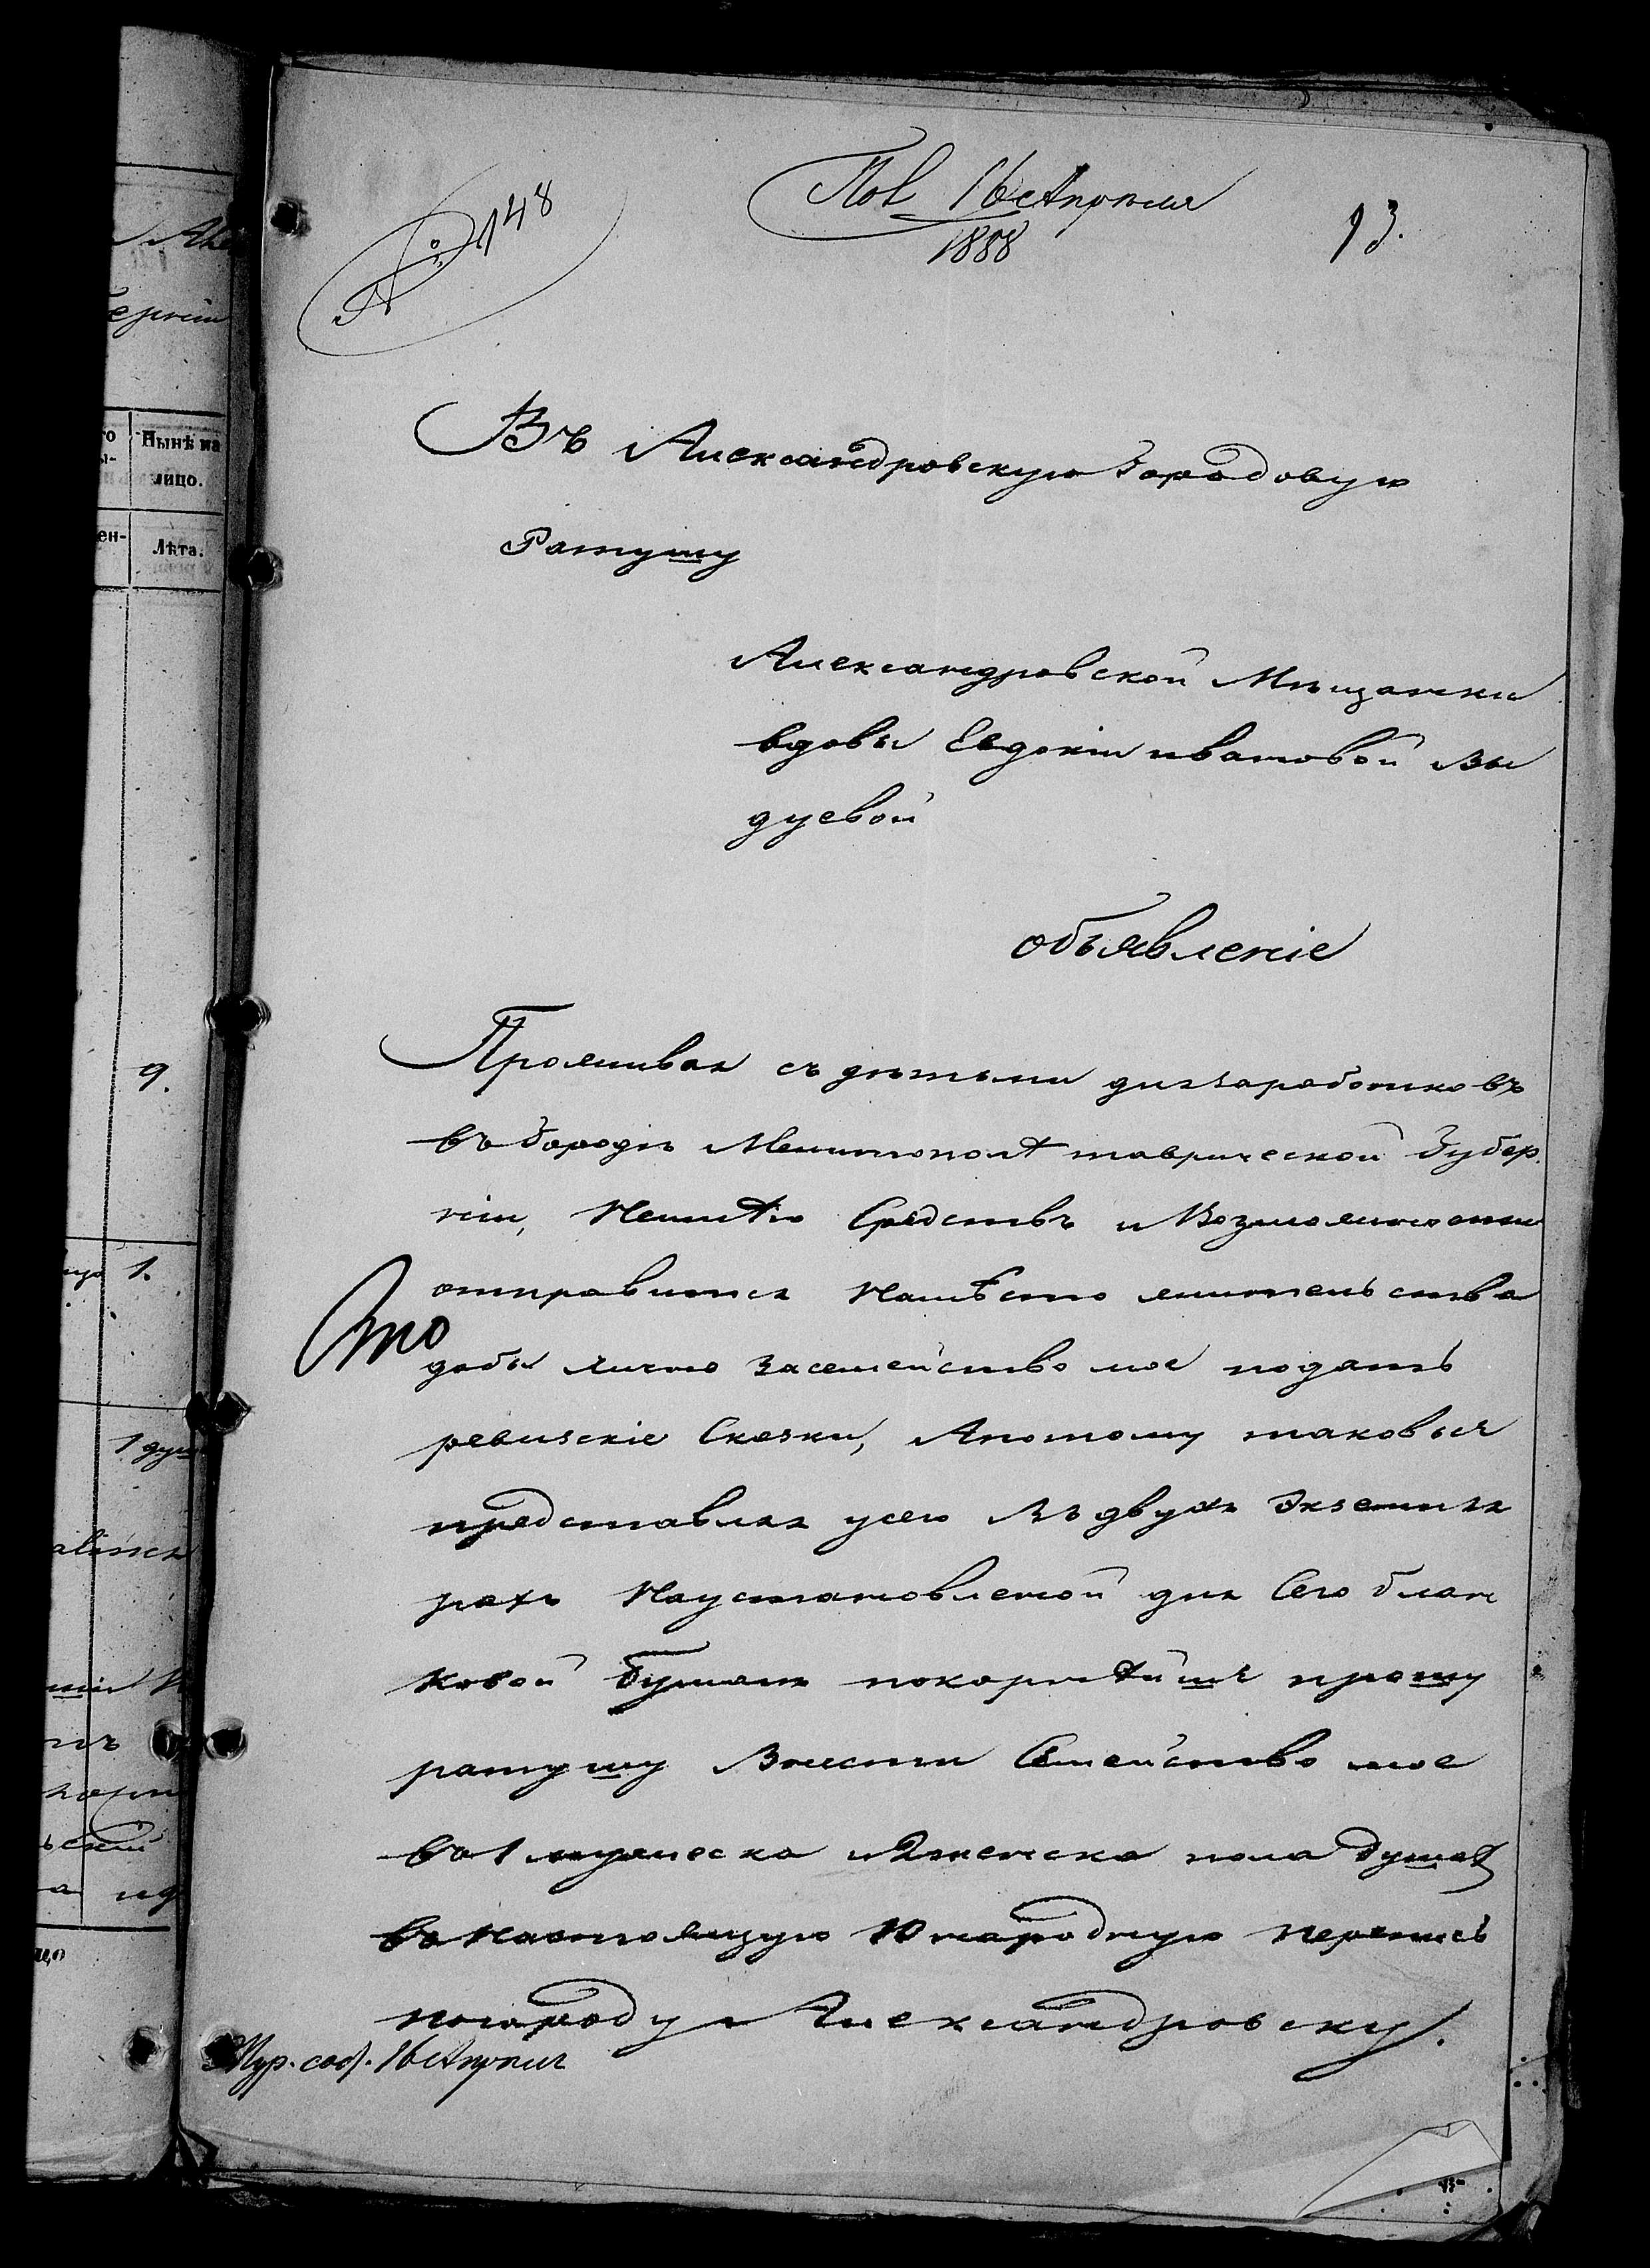 № 148
Пол 16 Апреля
1858
13.
Въ Александровскую Городовую
Ратушу
Александровской Мѣщанки
вдовы Евдокіи ивановой Вы
дуевой
объявленіе
Проживая съ дѣтьми для заработковъ
въ Городѣ Мелитополѣ таврической Губер
ніи, Неимѣю Средствъ и Возможности
отправится Намѣсто жительства
дабы лично засемейство мое подать
ревизскіе Сказки, Апотому таковыя
представляя усего Въ двухъ Экземпля
рахъ Наустановленой для Сего блан
ковой бумагѣ покорнѣйше прошу
ратушу Внести Семейство мое
въ 1 мужеска и 2 женска пола душах
въ Настоящую 10 народную перепись
погороду Александровску.
Жур. сост. 16 Апреля
Нынѣ на
лицо.
Лѣта.
9.
1.
1 душ